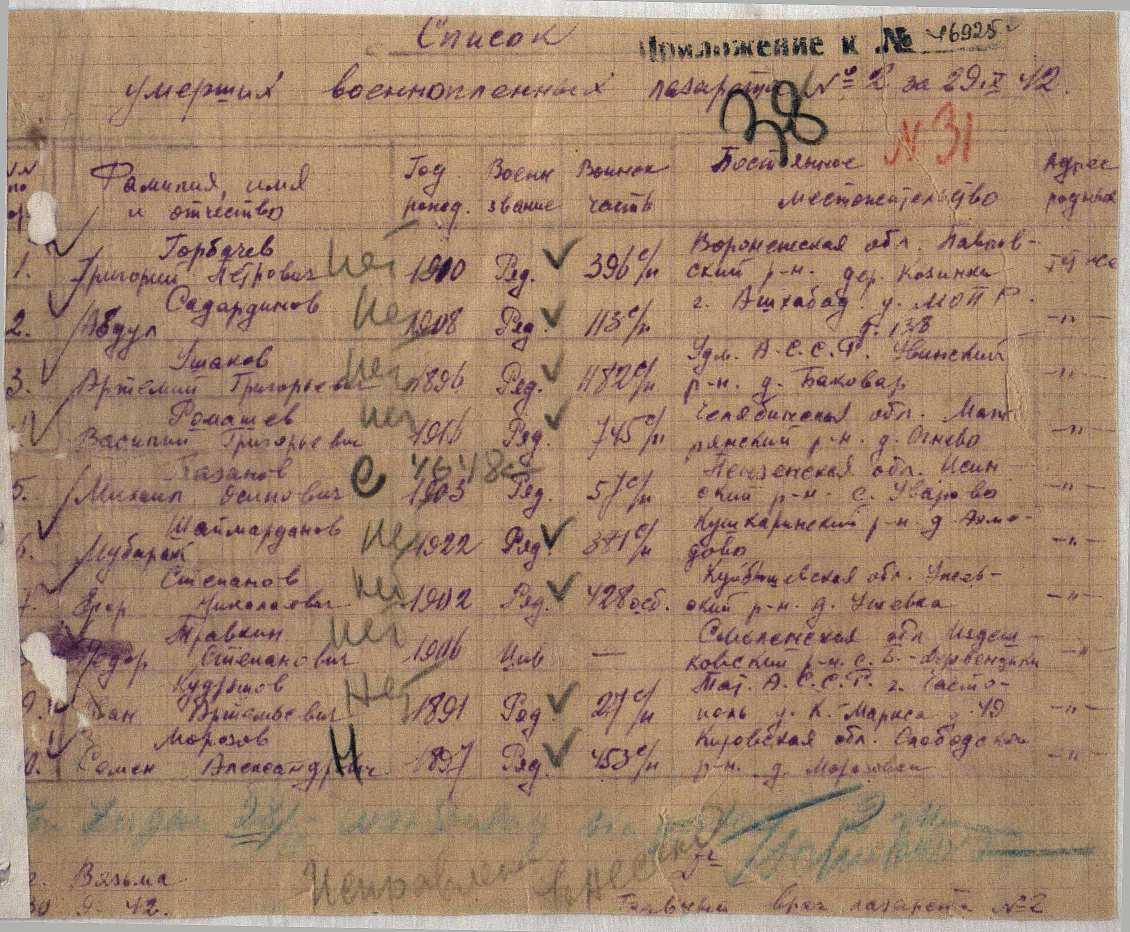 Список
Приложение к № 46925с
умерших военнопленных лазарета № 2 за 29.IX 42.
38 N 31
Фамилия, имя и отчество Год рожд. Воен звание Воинск часть Постоянное местожительство Адрес родных
1. Горбачев Григорий Петрович нет 1910 Ряд. 396 с/п Воронежская обл. Павлов-
ский р-н. дер. Козинка тот же
2. Садардинов Абдул нет 1908 Ряд. 113 с/п г. Ашхабад у. МОПР.
д. 138 -"-
3. Ушаков Артемий Григорьевич нет 1896 Ряд. 1182 с/п Удм. А.С.С.Р. Увинский
р-н. д. Баковар -"-
Ромашев Василий Григорьевич нет 1916 Ряд. 745 с/п Челябинская обл.
д. Огнево -"-
5. Казанов Михаил Осипович с 1903 Ряд. 57 с/п Пензенская обл. Исин-
ский р-н. с. Уварово -"-
6. Шаймарданов Мубарак нет 1922 Ряд. 381 с/п Кушкаринский р-н д. Ахме-
дово -"-
7. Степанов Егор Николаевич нет 1902 Ряд. 428 осб. Куйбышевская обл. Утев-
ский р-н. д. Утевка -"-
Травкин Федор Степанович нет 1906 Цив — Смоленская обл Издеш-
ковский р-н. с. Б- -"-
9. Кудряшов Иван Артемьевич нет 1891 Ряд. 27 с/п Тат. А.С.С.Р. г. Чисто-
поль у. К. Маркса д. 49 -"-
10. Морозов Семен Александрович Н 1897 Ряд. 453 с/п Кировская обл. Слободской
р-н. д. -"-
Исправлен внесены
г. Вязьма
30 9. 42.
Главный врач лазарета № 2